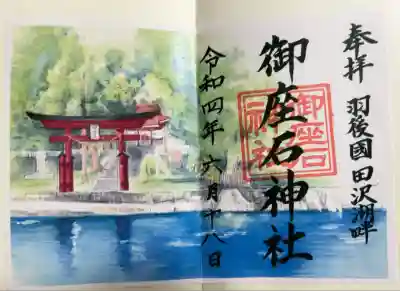 奉拝 羽後國田沢湖畔
御座石神社
御座石神社
令和四年六月十八日